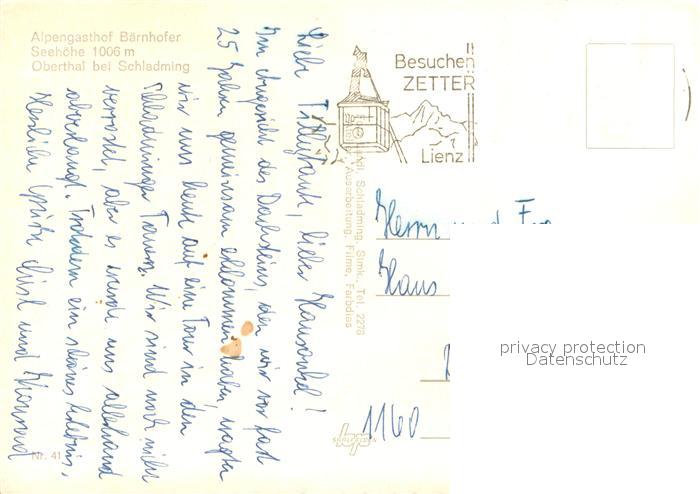 Alpengasthof Bärnhofer
Seehöhe 1006 m
Oberthal bei Schladming
Besuchen
ZETTER
Lienz
Liebe Tillytant, lieber Hansonkel!
Im Angesicht des Dachsteins, den wir vor fast
25 Jahren gemeinsam erklommen haben, wagten
wir uns heute auf eine Tour in den
Schladminger Tauern. Wir sind noch nicht
verrostet, aber es wurde uns allerhand
abverlangt. Trotzdem ein schönes Erlebnis.
Herzliche Grüße Christl und
Schladming, Stmk., Tel. 2276
Ausarbeitung, Filme, Farbdias
Herrn und
Hans
1160
privacy protection
Datenschutz
Nr. 41